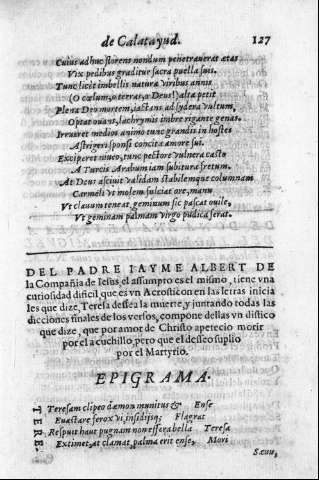 de Calatayud. 127
Cuius adhuc florens nondum penetrauerat ætas
Vix pedibus graditur sacra puella suis.
Tunc licèt imbellis natura viribus annis
(O cælum, ò terras, ò Deus!) alta petit
Plena Deo mortem, iactans ad sydera vultum,
Optat ouans, lachrymis imbre rigante genas.
Irrueret medios animo tunc grandis in hostes
Astrigeri sponsi concita amore sui.
Exciperet niueo, tunc pectore vulnera casto
A Turcis Arabum iam subitura fretum.
At Deus asciuit validam stabilemque columnam
Carmeli vt molem fulciat ore, manu
Vt clauum teneat, geminum sic pascat ouile,
Vt geminam palmam virgo pudica ferat.
DEL PADRE IAYME ALBERT DE
la Compañia de Iesus, el assumpto es el mismo, tiene vna
curiosidad dificil, que es vn Acrosticon en las letras inicia
les que dize, Teresa dessea la muerte, y juntando todas las
dicciones finales de los versos, compone dellas vn distico
que dize, que por amor de Christo apetecio morir
por el a cuchillo, pero que el desseo suplio
por el Martyrio.
EPIGRAMA.
T Teresam clipeo dæmon munitus & Ense
E Euastare ferox vi, insidijsq; Flagrat
R Respuit haut pugnam non effera bella Teresa
E Eximet, at clamat, palma erit ense, Mori